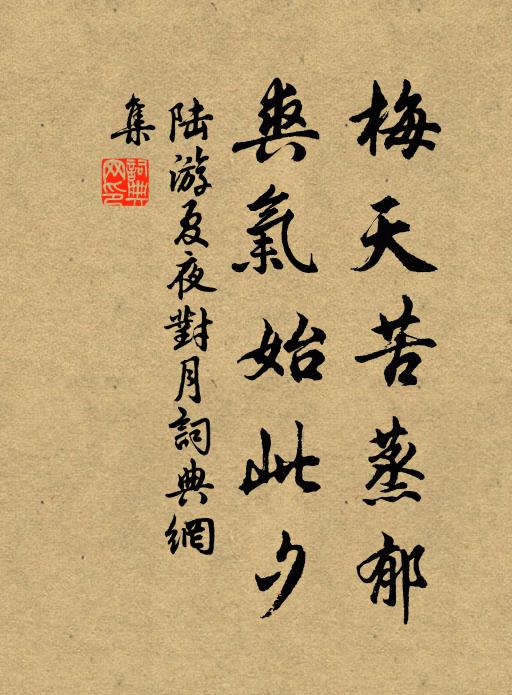 梅天苦蒸郁
爽氣始此夕
陆游夏夜對月詞典網
集
詞典网印